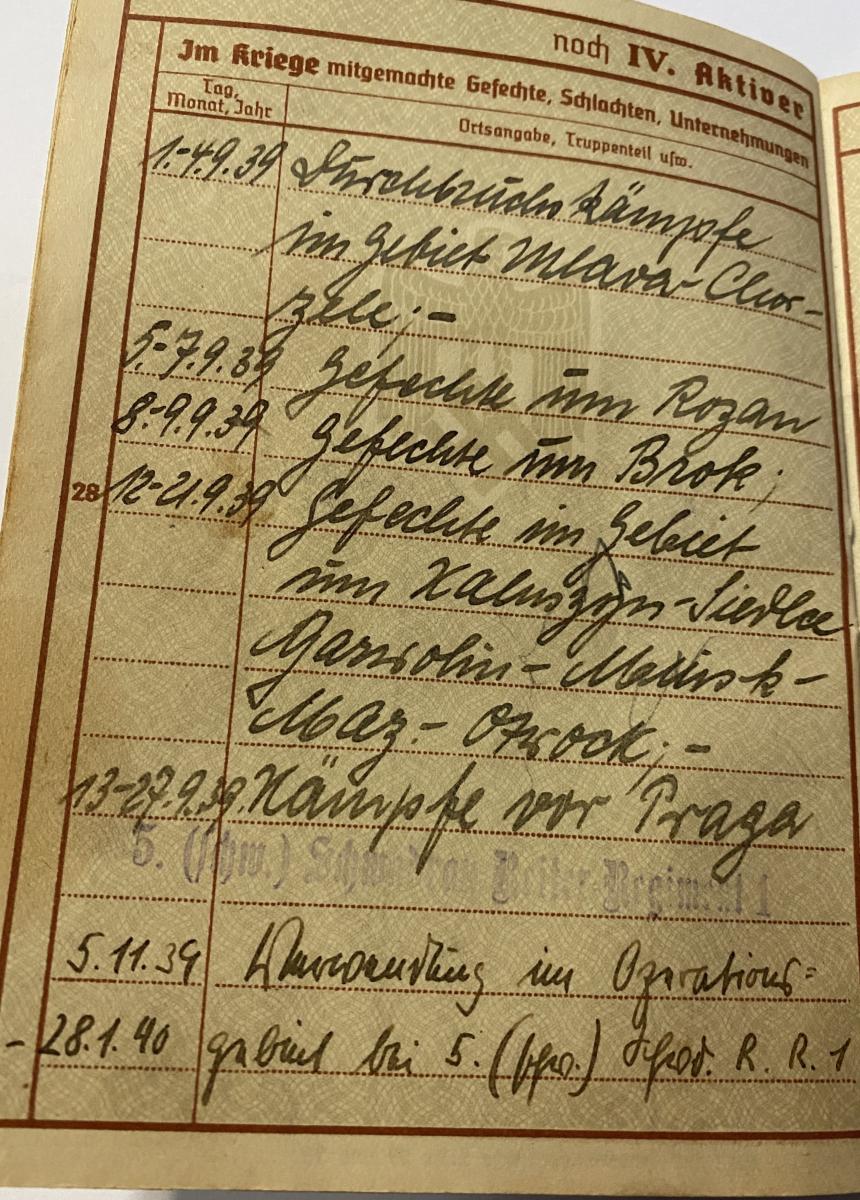 noch IV. Aktiver
Im Kriege mitgemachte Gefechte, Schlachten, Unternehmungen
Tag, Monat, Jahr
Ortsangabe, Truppenteil usw.
1.-4.9.39 Durchbruchskämpfe
im Gebiet Mlava-Chor-
zele; -
5.-7.9.39 Gefechte um Rozan
8.-9.9.39 Gefechte um Brok;
28 12-21.9.39 Gefechte im Gebiet
um Kaluszyn-Siedlce
Garwolin-Minsk-
Maz.- Otwock; -
13-27.9.39. Kämpfe vor Praga
5. (schw.) Schwadron Reiter-Regiment 1
5.11.39 Verwendung im Operations=
- 28.1.40 gebiet bei 5. (schw.) Schwd. R. R. 1